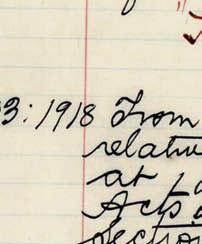 3:1918 From
relativ
at
Acts
section